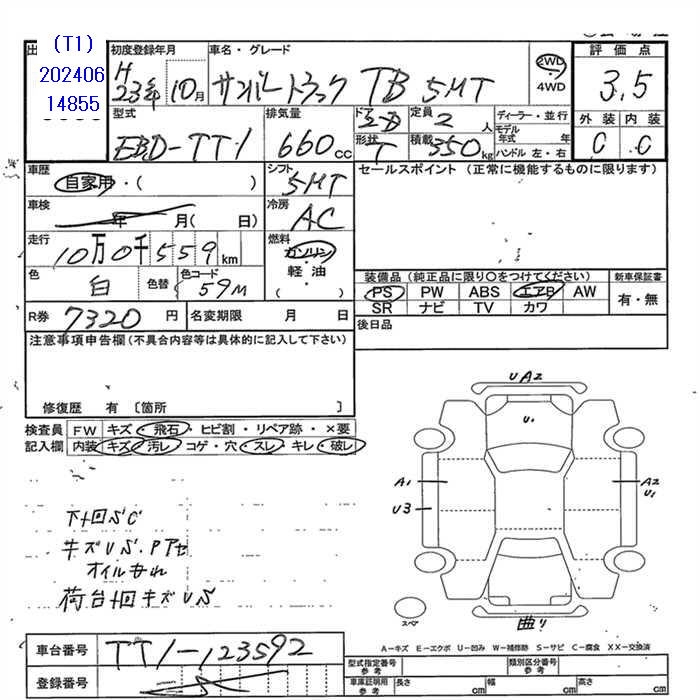 出 (T1) 202406 14855
初度登録年月 H23年 10月
車名・グレード サンバートラック TB 5MT
2WD・4WD
評価点 3.5
外装 C 内装 C
型式 EBD-TT1
排気量 660cc
ドア 2
形状 T
定員 2人
積載 350kg
ディーラー・並行
モデル年式 年
ハンドル 左・右
車歴 自家用・( )
シフト 5MT
セールスポイント(正常に機能するものに限ります)
車検 年 月( 日)
冷房 AC
走行 10万0千559km
燃料 ガソリン・軽油・( )
色 白 色替 色コード 59M
装備品(純正品に限り○をつけてください)
PS PW ABS エアB AW
SR ナビ TV カワ
新車保証書 有・無
R券 7320円
名変期限 月 日
後日品
注意事項申告欄(不具合内容等は具体的に記入して下さい)
修復歴 有 〔箇所 〕
検査員記入欄
FW キズ・飛石・ヒビ割・リペア跡・×要
内装 キズ・汚レ・コゲ・穴・スレ・キレ・破レ
UA2
U1
A1
U3
A2
U1
下廻りSC
キズUS・Pアセ
オイルもれ
荷台廻キズUS
スペア
曲り
A-キズ E-エクボ U-凹み W-補修跡 S-サビ C-腐食 XX-交換済
車台番号 TT1-123592
登録番号
型式指定番号 参考
類別区分番号 参考
車庫証明用 参考 長さ cm 幅 cm 高さ cm